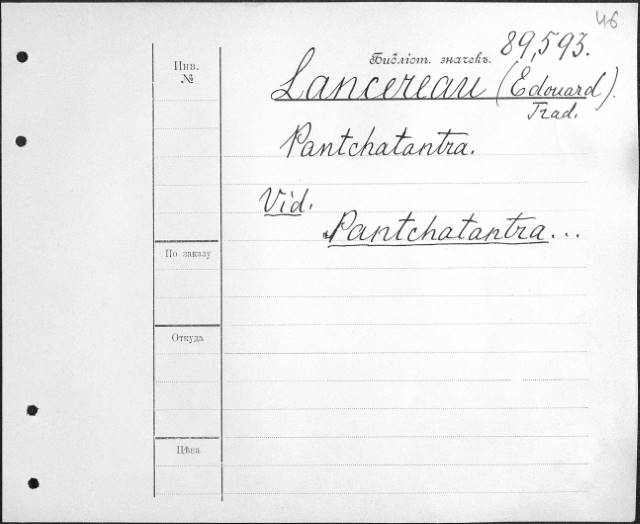 46
Инв.
№
Библіот. значекъ. 89,593.
Lancereau (Edouard).
Trad.
Pantchatantra.
Vid.
Pantchatantra...
По заказу
Откуда
Цѣна